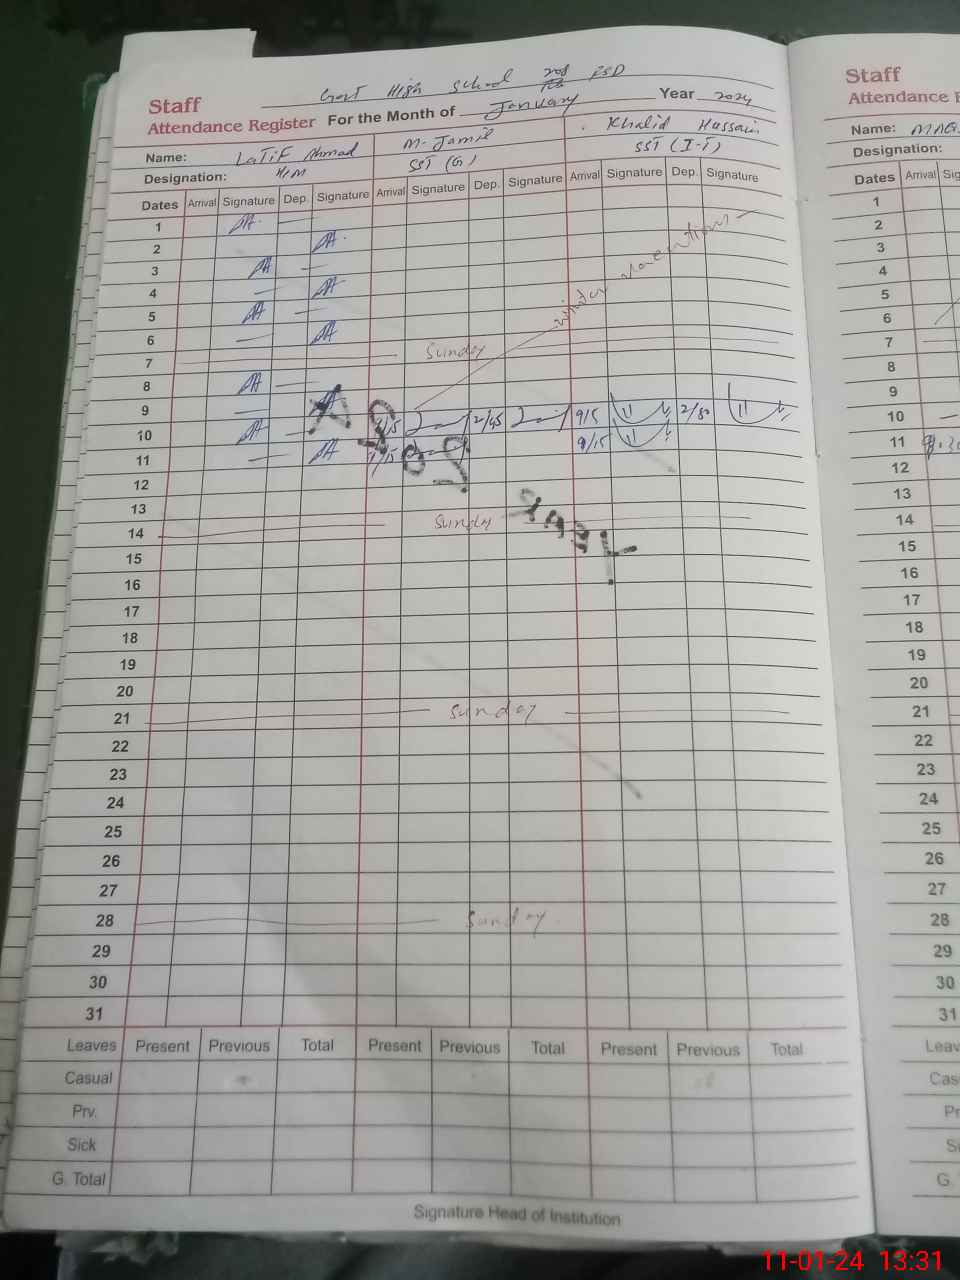 Govt High School 208 FSD
Staff
Attendance Register For the Month of January Year 2024
Name: Latif Ahmad M. Jamil Khalid Hussain
Designation: H/M SST (G) SST (I-T)
Dates Arrival Signature Dep. Signature Arrival Signature Dep. Signature Arrival Signature Dep. Signature
1
2
3
4
5
6
7 Sunday
8
9
10 2/45 9/15 2/50
11 9/15
12
13
14 Sunday
15
16
17
18
19
20
21 Sunday
22
23
24
25
26
27
28 Sunday
29
30
31
Leaves Present Previous Total Present Previous Total Present Previous Total
Casual
Prv.
Sick
G. Total
Signature Head of Institution
Staff
Attendance
Name:
Designation:
Dates Arrival
1
2
3
4
5
6
7
8
9
10
11
12
13
14
15
16
17
18
19
20
21
22
23
24
25
26
27
28
29
30
31
11-01-24 13:31